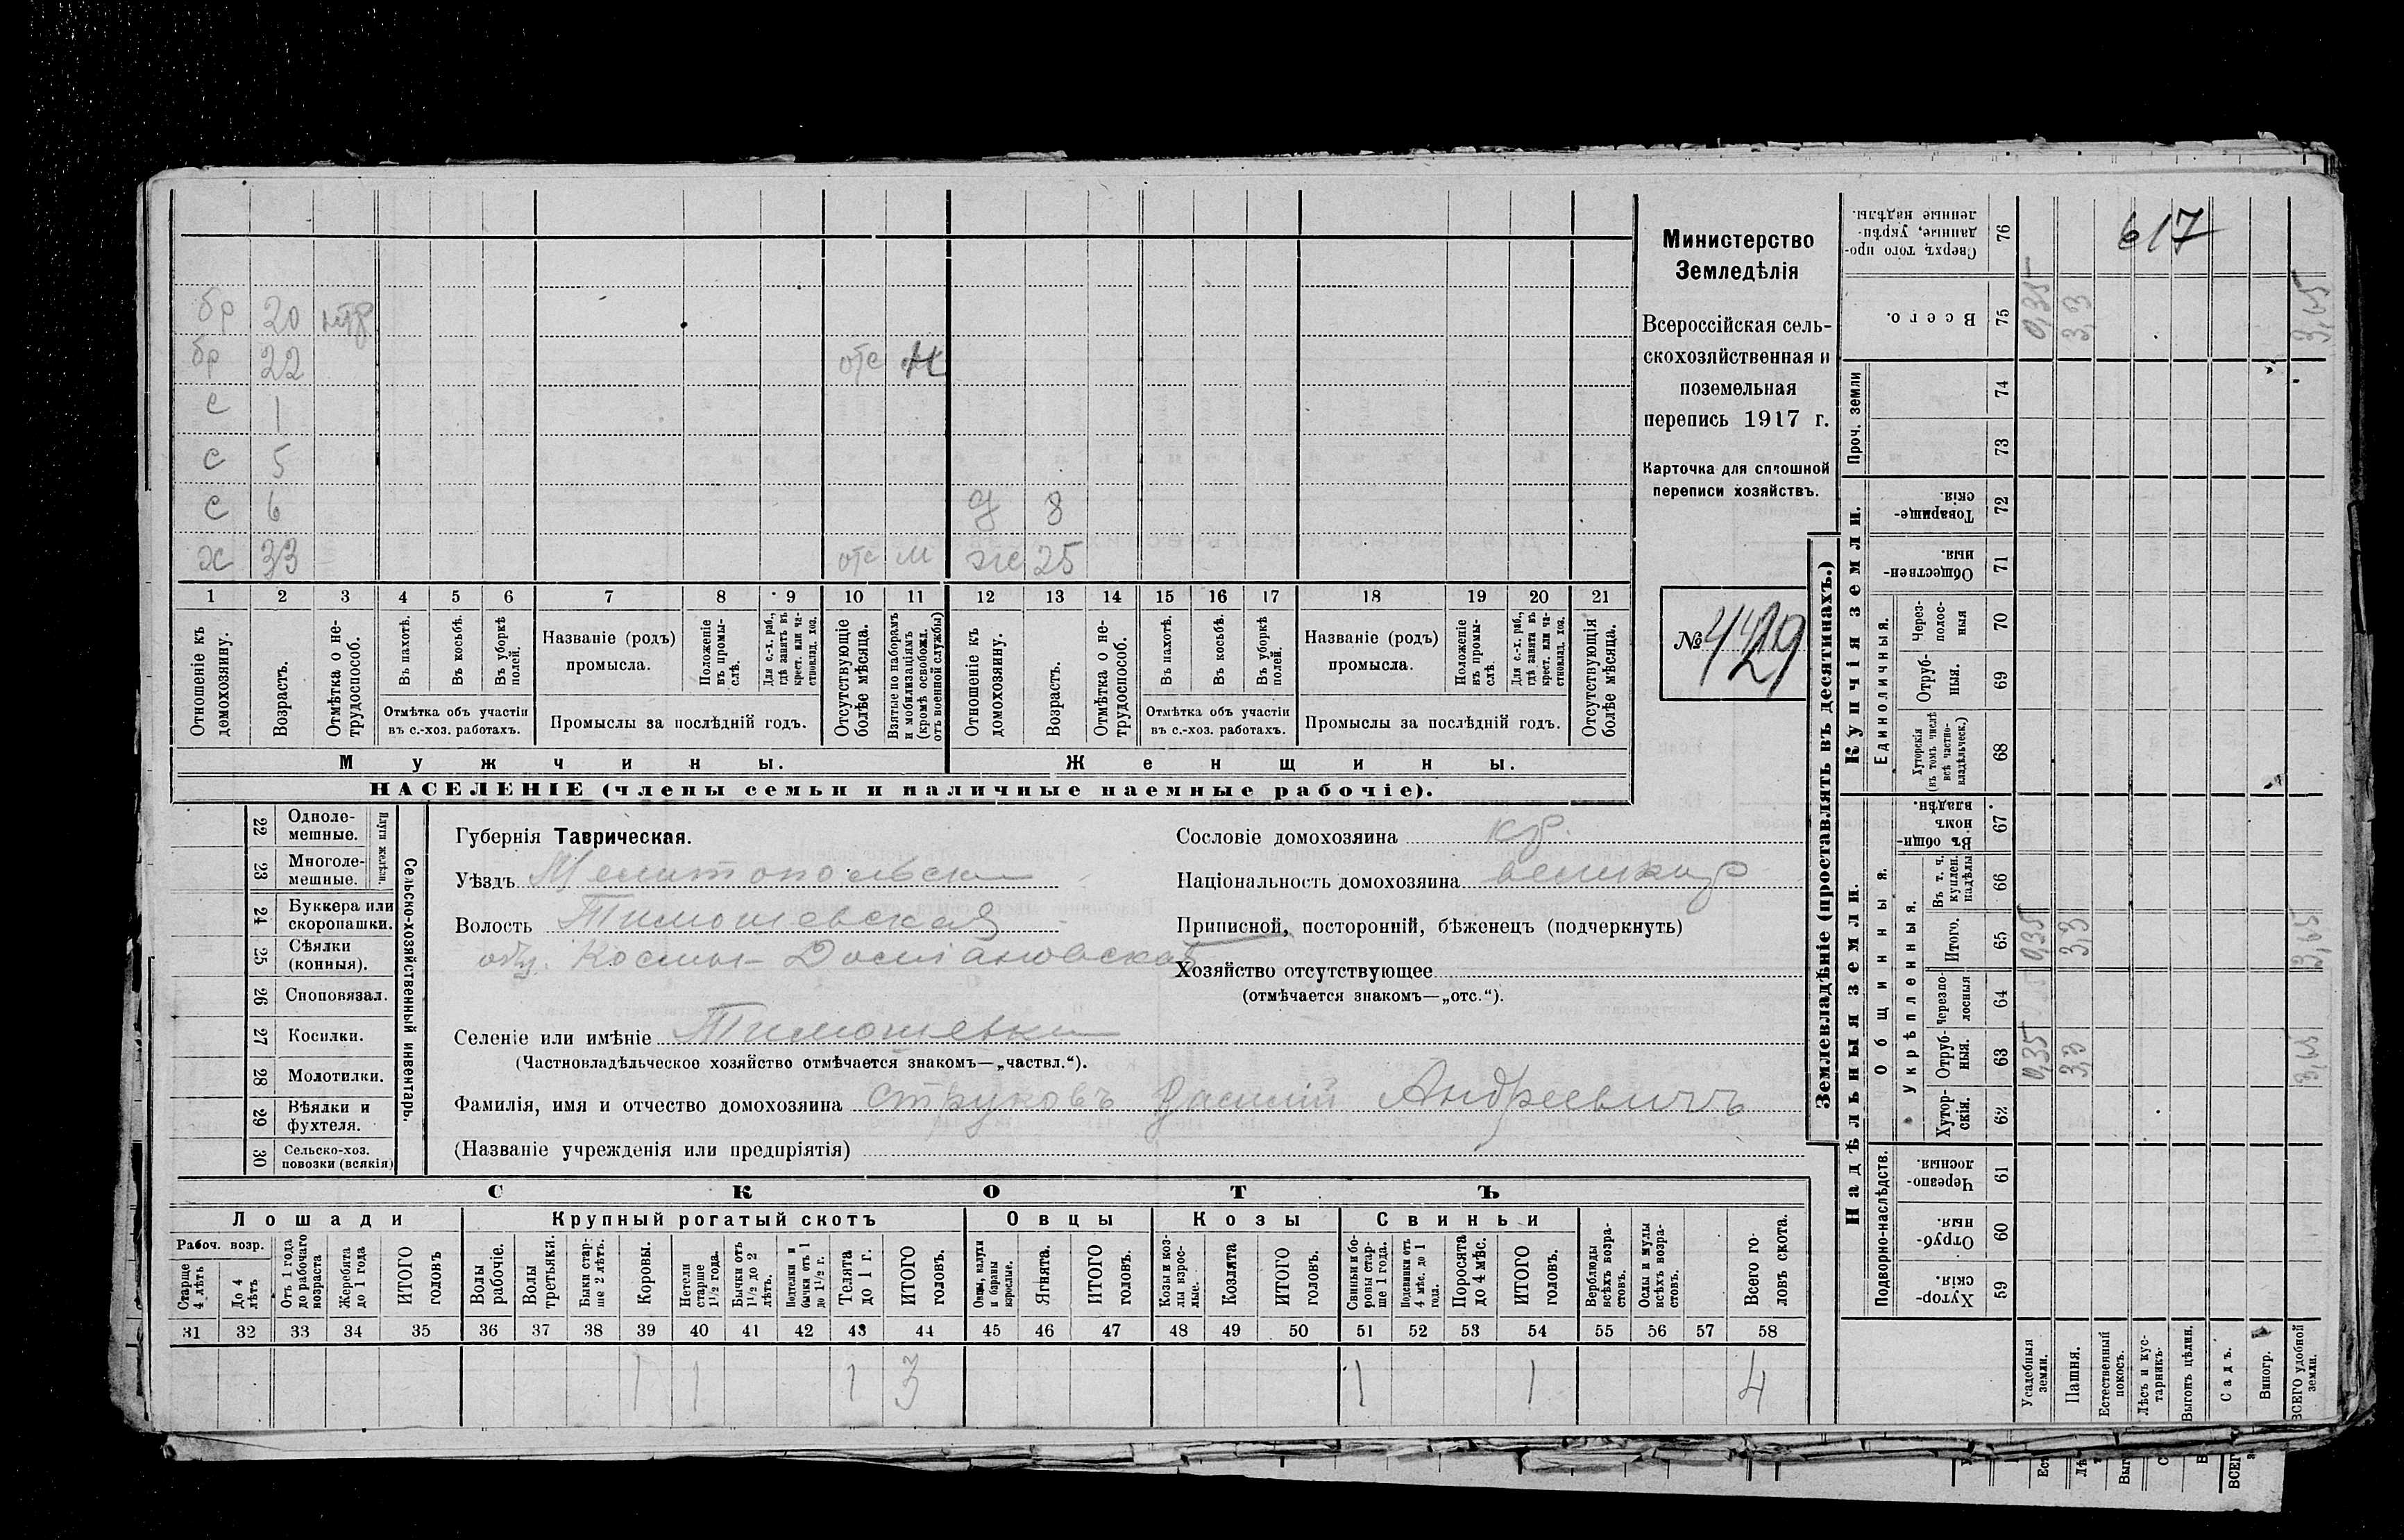 617
Министерство
Земледѣлія
Всероссійская сель-
скохозяйственная и
поземельная
перепись 1917 г.
Карточка для сплошной
переписи хозяйствъ.
№ 429
бр 20 нтр
бр 22 отс м
с 1
с 5
с 6 д 8
х 33 отс м ж 25
1 2 3 4 5 6 7 8 9 10 11 12 13 14 15 16 17 18 19 20 21
Отношеніе къ домохозяину.
Возрастъ.
Отмѣтка о не-трудоспособ.
Въ пахотѣ.
Въ косьбѣ.
Въ уборкѣ полей.
Отмѣтка объ участіи
въ с.-хоз. работахъ.
Названіе (родъ)
промысла.
Положеніе въ промы-слѣ.
Для с.-х. раб., гдѣ занятъ въ крест. или ча-стновлад. хоз.
Промыслы за послѣдній годъ.
Отсутствующіе болѣе мѣсяца.
Взятые по наборамъ и мобилизаціямъ (кромѣ освобожд. отъ военной службы)
Отношеніе къ домохозяину.
Возрастъ.
Отмѣтка о не-трудоспособ.
Въ пахотѣ.
Въ косьбѣ.
Въ уборкѣ полей.
Отмѣтка объ участіи
въ с.-хоз. работахъ.
Названіе (родъ)
промысла.
Положеніе въ промы-слѣ.
Для с.-х. раб., гдѣ занята въ крест. или ча-стновлад. хоз.
Промыслы за послѣдній годъ.
Отсутствующія болѣе мѣсяца.
Мужчины. Женщины.
НАСЕЛЕНІЕ (члены семьи и наличные наемные рабочіе).
22 Одноле-мешные.
23 Многоле-мешные.
Плуги желѣзн.
24 Буккера или скоропашки.
25 Сѣялки (конныя).
26 Сноповязал.
27 Косилки.
28 Молотилки.
29 Вѣялки и фухтеля.
30 Сельско-хоз. повозки (всякія)
Сельско-хозяйственный инвентарь.
Губернія Таврическая.
Уѣздъ Мелитопольски
Волость Тимошевская
общ. Космо-Домiановская
Селеніе или имѣніе Тимошевка
(Частновладѣльческое хозяйство отмѣчается знакомъ—„частвл.“).
Фамилія, имя и отчество домохозяина Струковъ Василій Андреевичъ
(Названіе учрежденія или предпріятія)
Сословіе домохозяина кр.
Національность домохозяина великор
Приписной, посторонній, бѣженецъ (подчеркнуть)
Хозяйство отсутствующее
(отмѣчается знакомъ—„отс.“).
СКОТЪ
Лошади Крупный рогатый скотъ Овцы Козы Свиньи
Рабоч. возр.
Старше 4 лѣтъ
До 4 лѣтъ
Отъ 1 года до рабочаго возраста
Жеребята до 1 года
ИТОГО головъ
Волы рабочіе.
Волы третьяки.
Быки стар-ше 2 лѣтъ.
Коровы.
Нетели старше 1½ года.
Бычки отъ 1½ до 2 лѣтъ.
Подтелки и бычки отъ 1 до 1½ г.
Телята до 1 г.
ИТОГО головъ.
Овцы, валухи и бараны взрослые.
Ягнята.
ИТОГО головъ.
Козы и коз-лы взрос-лые.
Козлята
ИТОГО головъ.
Свиньи и бо-ровы стар-ше 1 года.
Подсвинки отъ 4 мѣс. до 1 года.
Поросята до 4 мѣс.
ИТОГО головъ.
Верблюды всѣхъ возра-стовъ.
Ослы и мулы всѣхъ возра-стовъ.
Всего го-ловъ скота.
31 32 33 34 35 36 37 38 39 40 41 42 43 44 45 46 47 48 49 50 51 52 53 54 55 56 57 58
1 1 1 3 1 1 4
Землевладѣніе (проставлять въ десятинахъ.)
Надѣльныя земли. Купчія земли. Проч. земли
Подворно-наслѣдств.
Общинныя.
Укрѣпленныя.
Единоличныя.
Хутор-скія. 59
Отруб-ныя. 60
Черезпо-лосныя. 61
Хутор-скія. 62
Отруб-ныя. 63 0,35 3,3 3,65
Черезпо-лосныя 64
Итого. 65 0,35 3,3 3,65
Въ т. ч. куплен. надѣлы 66
Въ общи-номъ владѣн. 67
Хуторскія (въ томъ числѣ всѣ частно-владѣльческ.) 68
Отруб-ныя. 69
Через-полос-ныя 70
Обществен-ныя. 71
Товарище-скія. 72
73
74
Всего. 75 0,35 3,3 3,65
Сверхъ того про-данные, укрѣп-ленные надѣлы. 76
Усадебныя земли.
Пашня.
Естественный покосъ.
Лѣсъ и кус-тарникъ.
Выгонъ цѣлин.
Садъ.
Виногр.
ВСЕГО удобной земли.